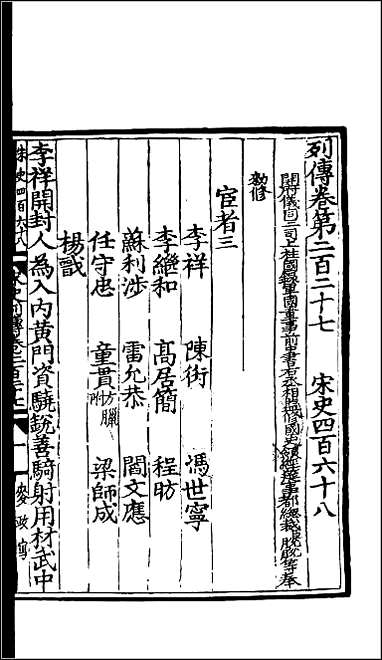 列傳卷第二百二十七　宋史四百六十八
開府儀同三司上柱國錄軍國重事前中書右丞相監修國史領經筵事都總裁脫脫等奉
勑修
宦者三
李祥　陳衍　馮世寧
李繼和　高居簡　程昉
蘇利涉　雷允恭　閻文應
任守忠　童貫方臘附　梁師成
楊戩
李祥開封人為入內黃門資驍銳善騎射用材武中
宋史四百六十八
一